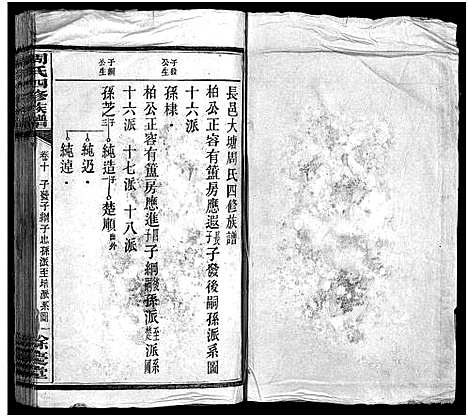 長邑大塘周氏四修族譜
子發公生
柏公正容有簠房應遐子長子發後嗣孫派系圖
十六派
孫棣．
子綱公生
柏公正容有簠房應進子四子綱後孫派至楚派系圖
十六派　十七派　十八派
孫芝－純造子一－楚順出外
純迈．
純逴．
周氏四修族譜
卷十　子發子綱子忠孫派至培派系圖　一
餘慶堂